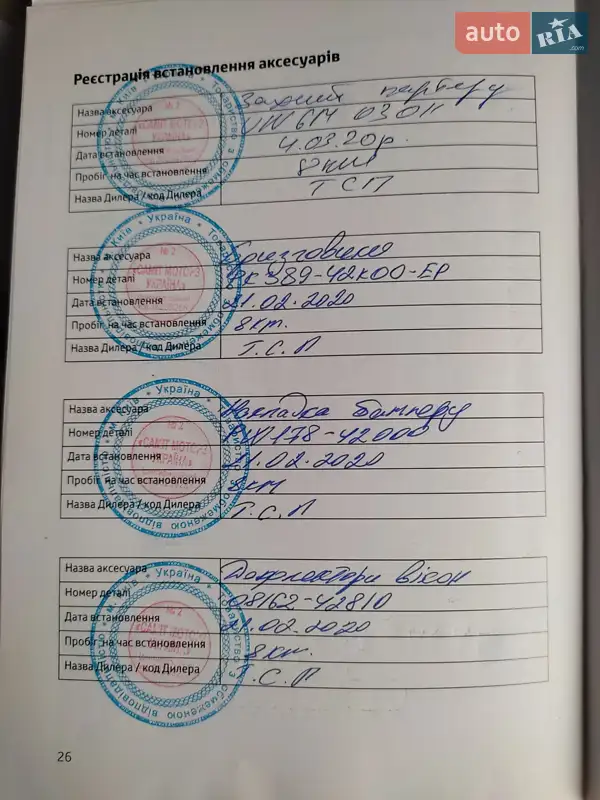 auto RIA .com
Реєстрація встановлення аксесуарів
Назва аксесуара Захист картеру
Номер деталі
Дата встановлення 4.03.20р.
Пробіг на час встановлення 8км
Назва Дилера / код Дилера ТСП
Назва аксесуара Бризговики
Номер деталі PK389-42K00-EP
Дата встановлення 21.02.2020
Пробіг на час встановлення 8км.
Назва Дилера / код Дилера Т.С.П
Назва аксесуара Накладка бамперу
Номер деталі PW178-42000
Дата встановлення 21.02.2020
Пробіг на час встановлення 8км
Назва Дилера / код Дилера Т.С.П
Назва аксесуара Дефлектори вікон
Номер деталі 08162-42810
Дата встановлення 21.02.2020
Пробіг на час встановлення 8км.
Назва Дилера / код Дилера Т.С.П
26